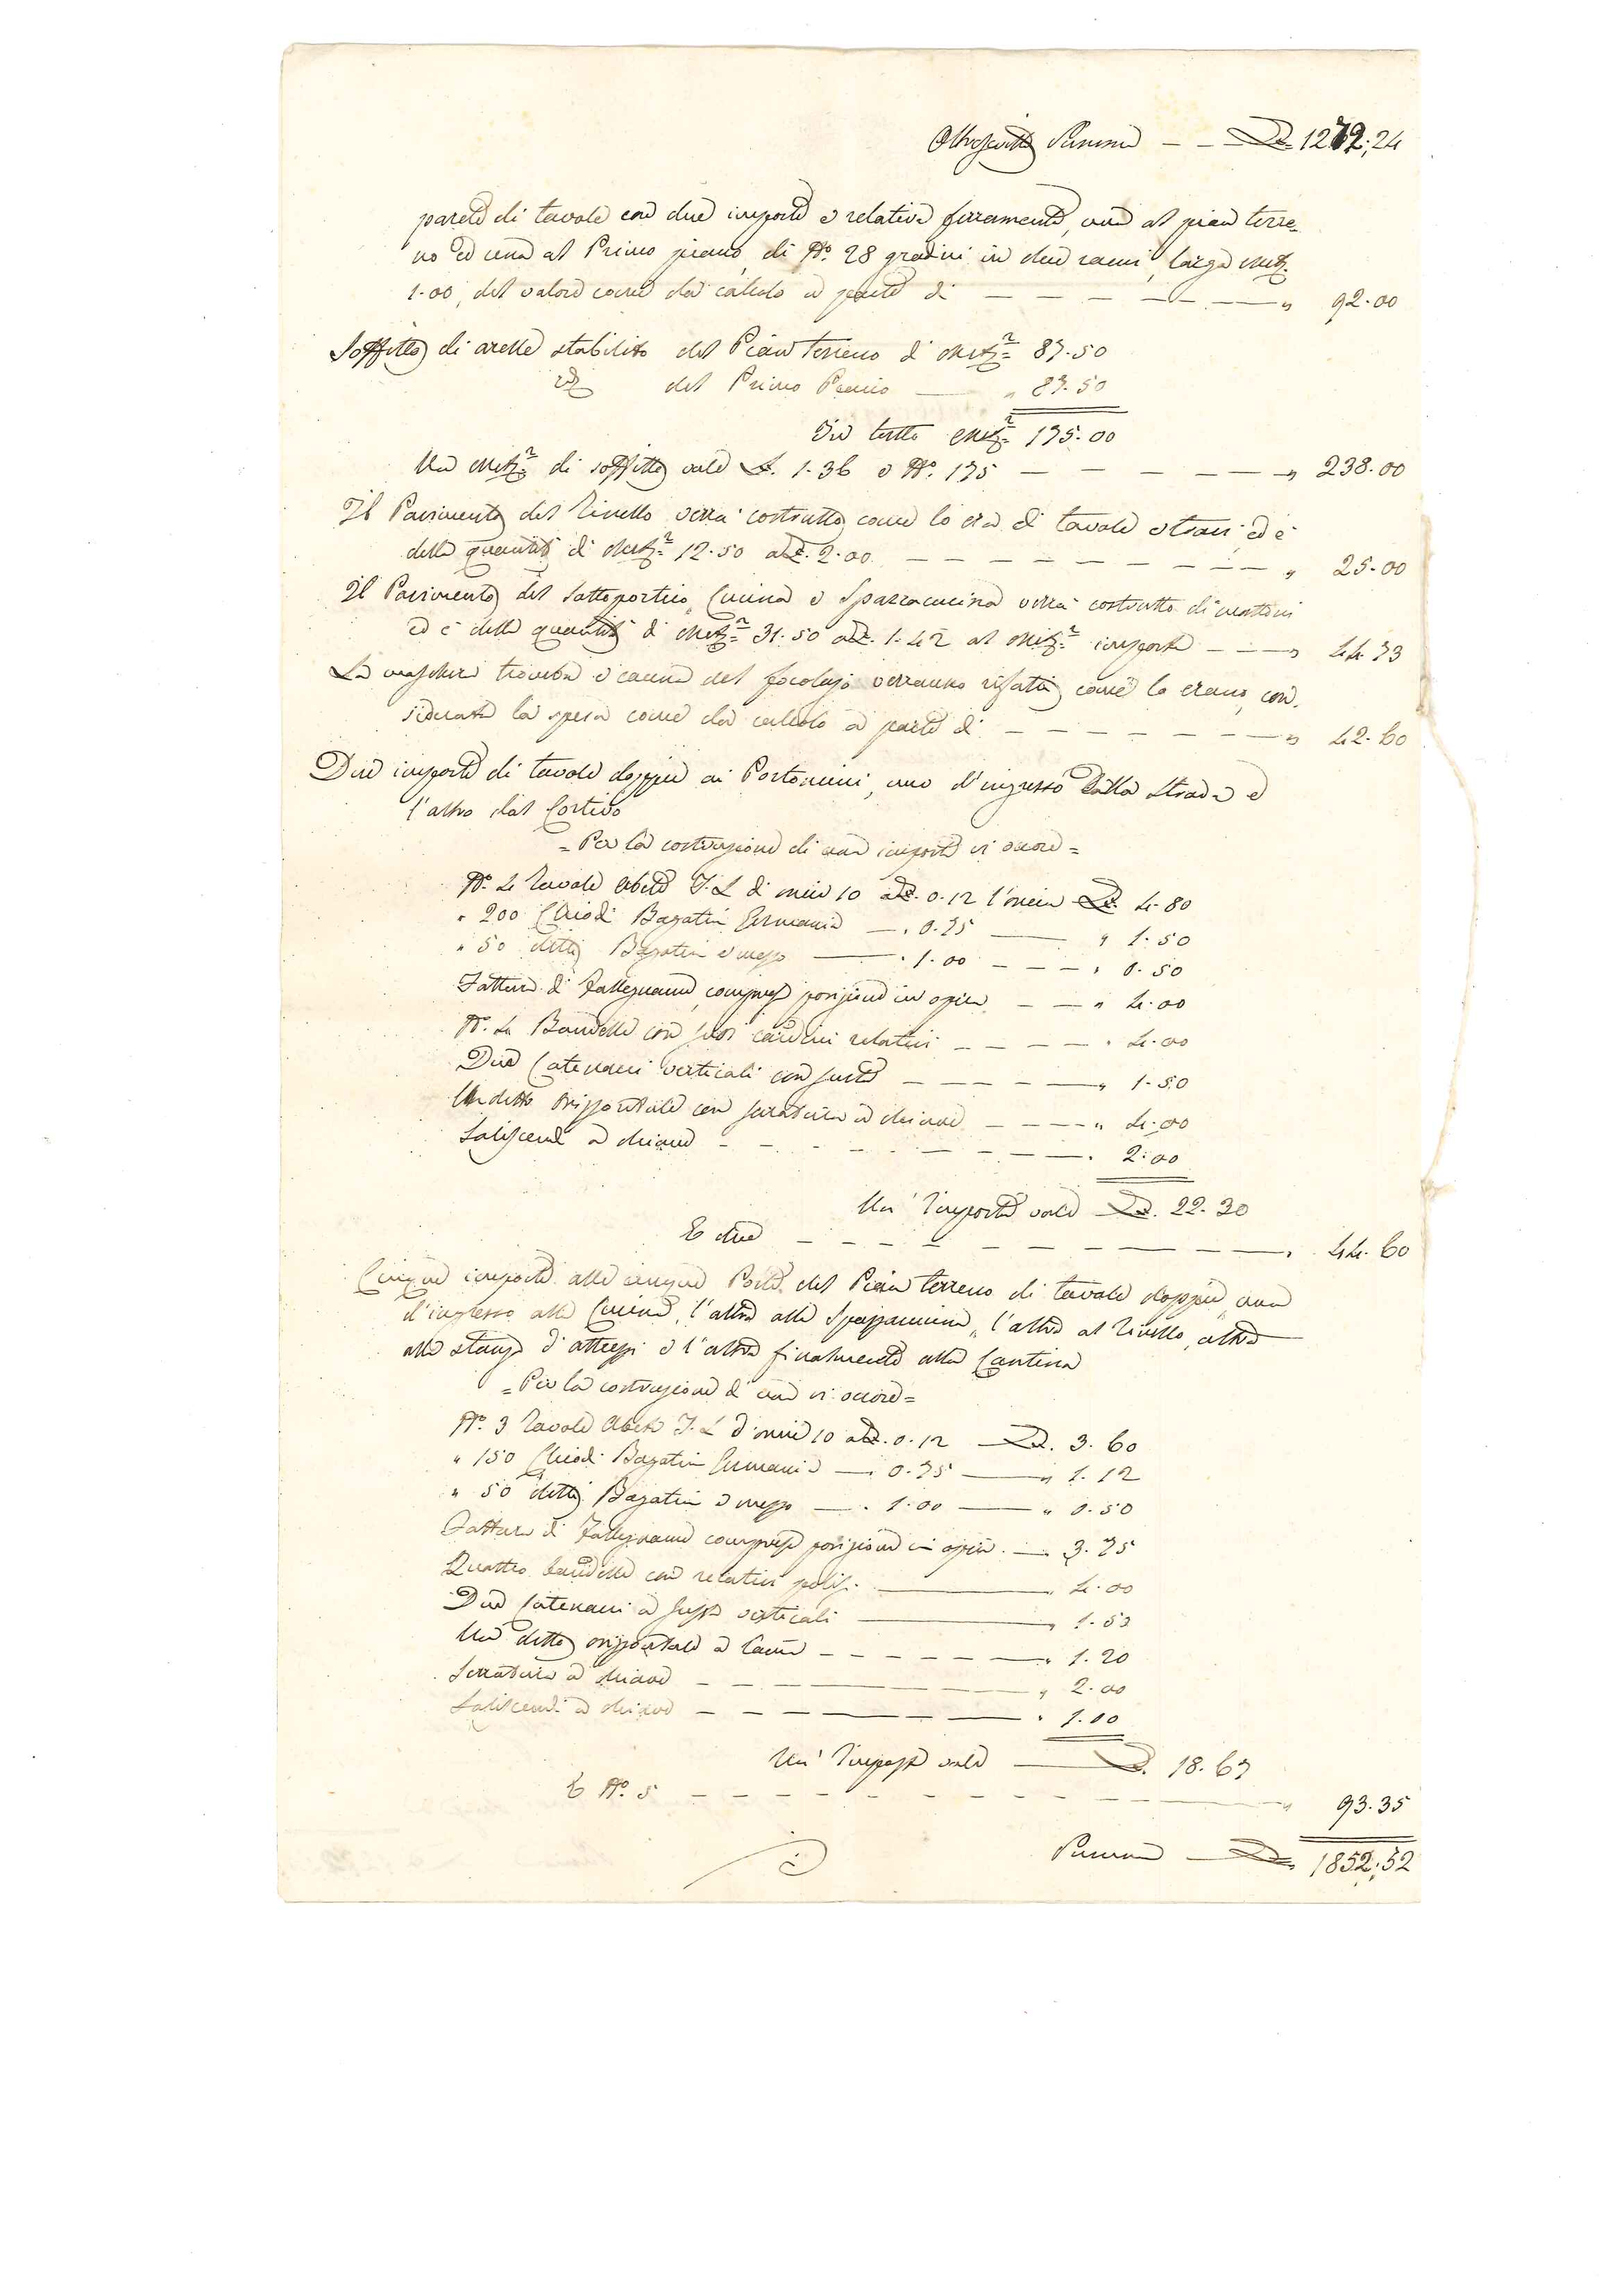 Oltrescritta Somma — — L. 1272,24
parete di tavole con due imposte e relativa ferramenta, una al pian terre-
no ed una al Primo piano, di N.° 28 gradini in due rami, larga Met.
1.00, del valore come da calcolo a parte di — — — — — — " 92.00
Soffitto di arelle stabilito del Pian terreno di Met.² 87.50
id. del Primo Piano — " 87.50
In tutto Met.² 175.00
Un Met.² di soffitto vale L. 1.36 e N.° 175 — — — — — " 238.00
Il Pavimento del Tinello verrà costrutto come lo era di tavole e travi, ed è
della quantità di Met.² 12.50 a L. 2.00 — — — — — — — — — " 25.00
Il Pavimento del Sottoportico, Cucina e Spazzacucina verrà costrutto di mattoni
ed è della quantità di Met.² 31.50 a L. 1.42 al Met.² importa — — — " 44.73
La maschera tromba e canna del focolajo verranno rifatti come lo erano, con-
siderata la spesa come da calcolo a parte di — — — — — — — " 42.60
Due imposte di tavole doppie ai Portoncini, uno d'ingresso dalla strada e
l'altro dal Cortivo
= Per la costruzione di una imposta vi occore =
N.° 4 Tavole Abete T.L di oncie 10 a L. 0.12 l'oncia L. 4.80
" 200 Chiodi Bagatin Germania — " 0.75 — " 1.50
" 50 detti Bagatin e mezzo — " 1.00 — — — " 0.50
Fattura di Fallegname, compresa posizione in opera — — " 4.00
N.° 4 Bandelle con suoi cardini relativi — — — — — " 4.00
Due Catenacci verticali con susta — — — — — " 1.50
Un detto orizzontale con serratura a chiave — — — — " 4.00
Saliscendi a chiave — — — — — — — — " 2.00
Un' Imposta vale L. 22.30
E due — — — — — — — — — — " 44.60
Cinque imposte alle cinque Porte del Pian terreno di tavole doppie, una
d'ingresso alla Cucina, l'altra alla Spazzacucina, l'altra al Tinello, altra
alla stanza d'attrezzi e l'altra finalmente alla Cantina
= Per la costruzione di una vi occore =
N.° 3 Tavole Abete T.L d'oncie 10 a L. 0.12 — L. 3.60
" 150 Chiodi Bagatin Germania — " 0.75 — " 1.12
" 50 detti Bagatin e mezzo — " 1.00 — " 0.50
Fattura di Fallegname compresa posizione in opera — " 3.75
Quattro bandelle con relativi polesi — " 4.00
Due Catenacci a susta verticali — " 1.50
Un detto orizzontale a — — — — — " 1.20
Serratura a chiave — — — — — " 2.00
Saliscendi a chiave — — — — — " 1.00
Un' Imposta vale — L. 18.67
E N.° 5 — — — — — — — — — " 93.35
Somma — L. 1852,52